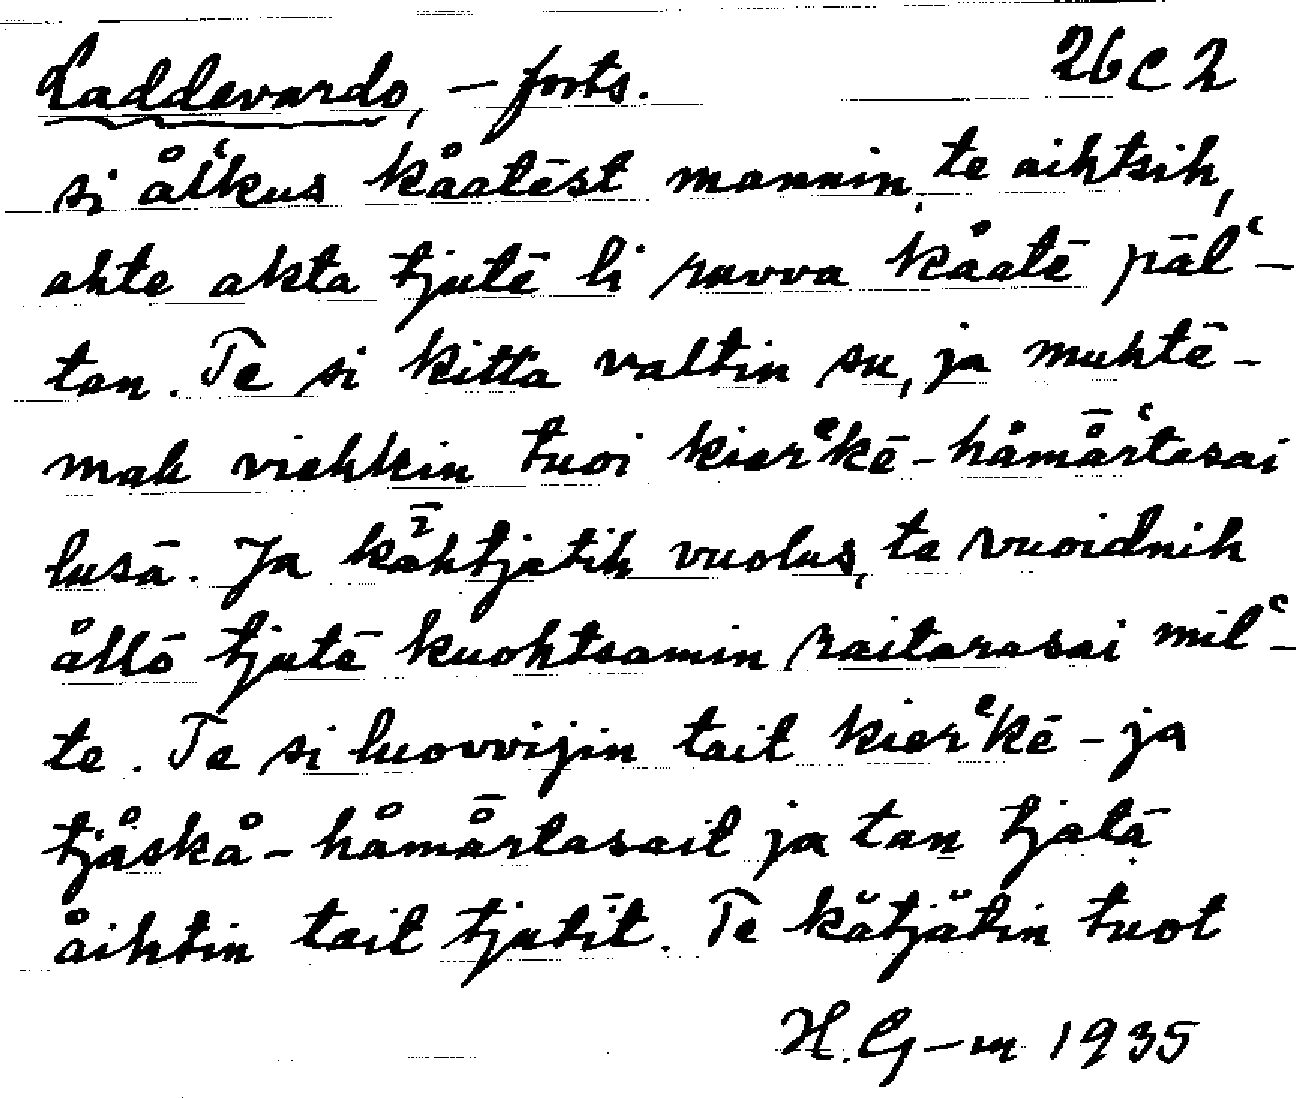 Laddevardo, – forts. 26 C 2
si ålʽkus kåatēst mannin, te aihtsih,
ahte akta tjutē li ruvva kåatē pālʽ-
tan. Te si kitta valtin su, ja muhtē-
mah viehkin tuoi kierᵉkē-håmårtasai
lusā. Ja kāhtjatih vuolus, te vuoidnih
ållō tjutē kuohtsamin raitarasai milʽ-
te. Te si luovvijin tait kierᵉkē- ja
tjåskå-håmårtasait ja tan tjatā
åihtin tait tjutīt. Te kätjätin tuot
H. G–m 1935